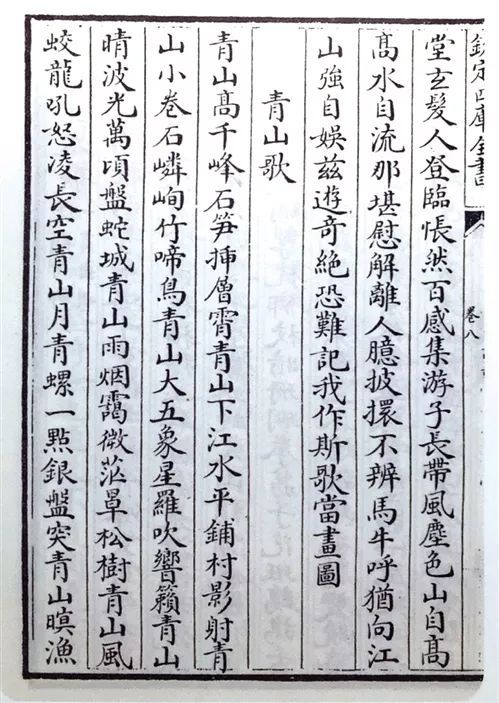 欽定四庫全書
卷八
堂玄髮人登臨悵然百感集游子長帶風塵色山自髙
髙水自流那堪慰解離人臆披擐不辨馬牛呼猶向江
山強自娛茲遊奇絕恐難記我作斯歌當畫圖
青山歌
青山髙千峰石笋揷層霄青山下江水平鋪村影射青
山小卷石嶙峋竹啼鳥青山大五象星羅吹響籟青山
晴波光萬頃盤蛇城青山雨烟靄微茫罩松樹青山風
蛟龍吼怒凌長空青山月青螺一點銀盤突青山暝漁